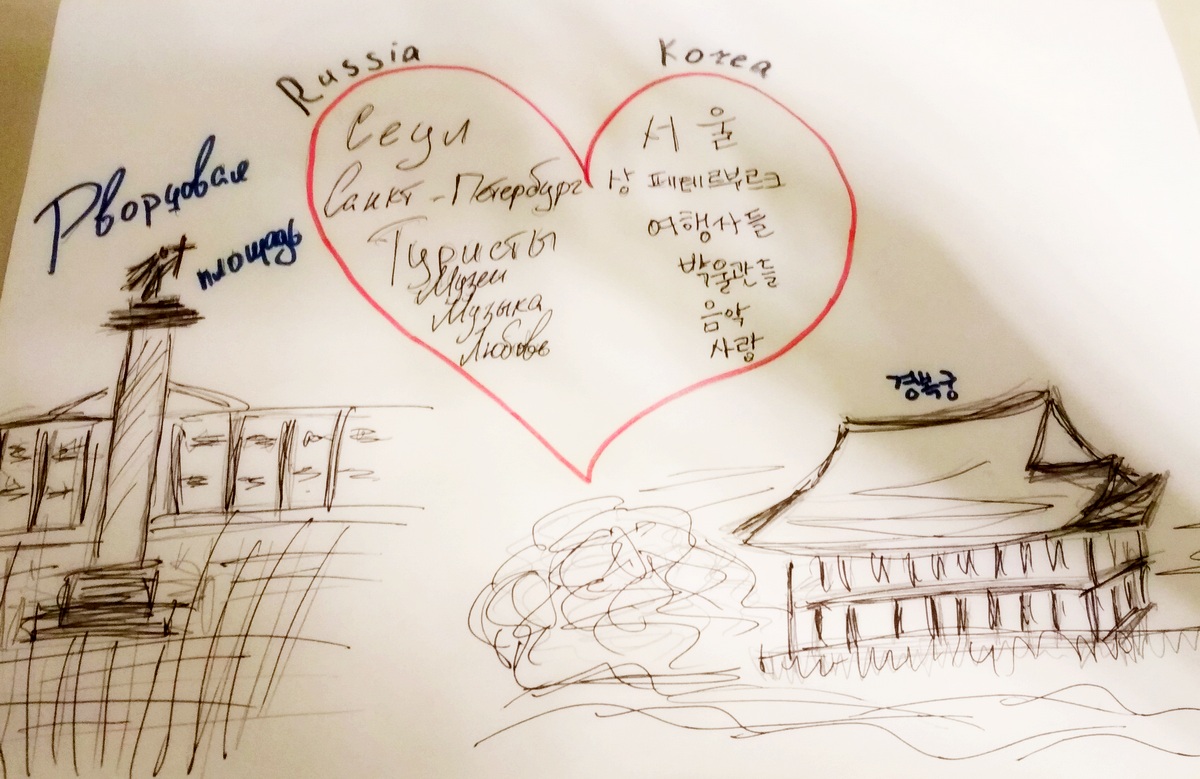 Russia
Korea
Дворцовая
площадь
Сеул
Санкт-Петербург
Туристы
Музеи
Музыка
Любовь
서울
상 페테르부르크
여행사들
박울관들
음악
사랑
경복궁